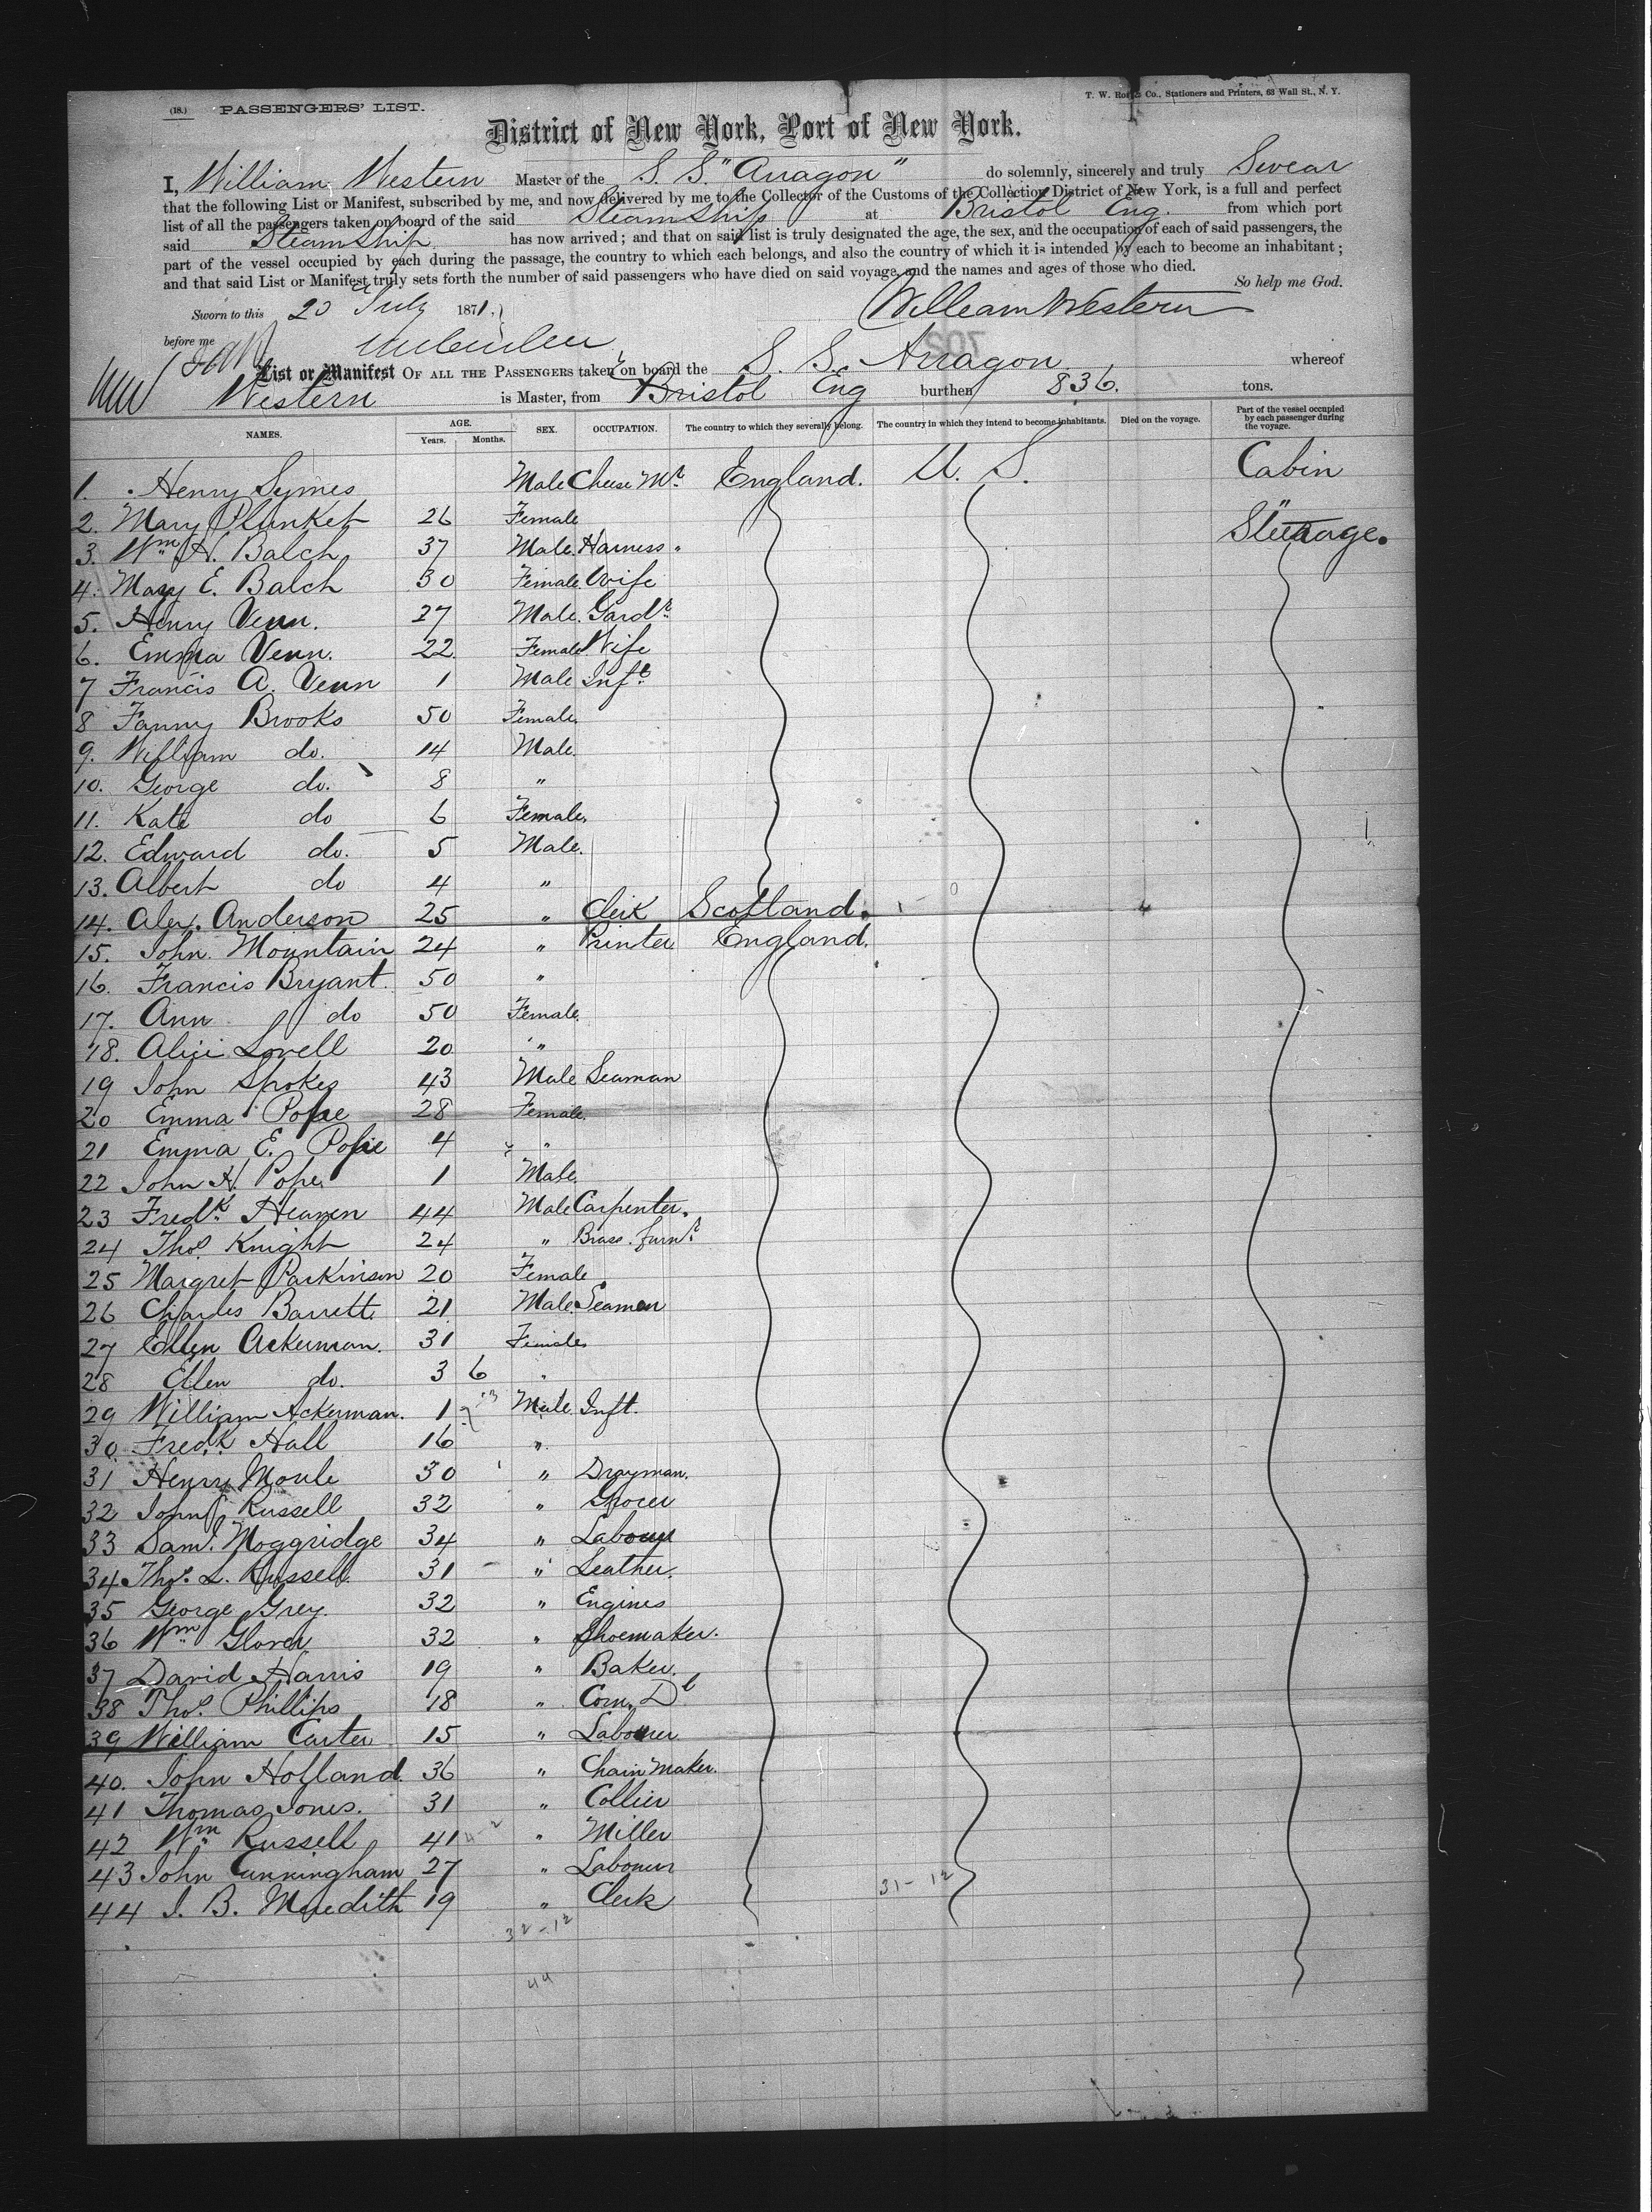 (18.) PASSENGERS' LIST.
T. W. Co., Stationers and Printers, 63 Wall St., N. Y.
District of New York, Port of New York.
I, William Western Master of the S. S. "Arragon" do solemnly, sincerely and truly Swear
that the following List or Manifest, subscribed by me, and now delivered by me to the Collector of the Customs of the Collection District of New York, is a full and perfect
list of all the passengers taken on board of the said Steamship at Bristol Eng. from which port
said Steamship has now arrived; and that on said list is truly designated the age, the sex, and the occupation of each of said passengers, the
part of the vessel occupied by each during the passage, the country to which each belongs, and also the country of which it is intended by each to become an inhabitant;
and that said List or Manifest truly sets forth the number of said passengers who have died on said voyage, and the names and ages of those who died.
So help me God.
Sworn to this 20 July 1871.
William Western
before me
List or Manifest OF ALL THE PASSENGERS taken on board the S. S. Arragon whereof
Western is Master, from Bristol Eng burthen 836. tons.
NAMES. AGE. Years. Months. SEX. OCCUPATION. The country to which they severally belong. The country in which they intend to become inhabitants. Died on the voyage. Part of the vessel occupied by each passenger during the voyage.
1. Henry Symes Male Cheese Mr. England. U. S. Cabin
2. Mary Plunket 26 Female "
3. Wm H. Balch 37 Male. Harness. Steerage.
4. Mary E. Balch 30 Female. Wife
5. Henry Venn. 27 Male. Gardr.
6. Emma Venn. 22 Female Wife
7 Francis A. Venn 1 Male Inft.
8 Fanny Brooks 50 Female.
9. William do. 14 Male.
10. George do. 8 "
11. Kate do 6 Female.
12. Edward do. 5 Male.
13. Albert do 4 "
14. Alex. Anderson 25 " Clerk Scotland.
15. John. Mountain 24 " Printer England.
16. Francis Bryant. 50 "
17. Ann do 50 Female.
18. Alice Lovell 20 "
19 John Spokes 43 Male Seaman
20 Emma Pope 28 Female.
21 Emma E. Pope 4 "
22 John H. Pope 1 Male.
23 Fredk. Heaven 44 Male Carpenter.
24 Thos. Knight 24 " Brass. furnr.
25 Margret Parkinson 20 Female.
26 Charles Barrett. 21 Male. Seaman
27 Ellen Ackerman. 31 Female
28 Ellen do. 3 6 "
29 William Ackerman. 1 Male. Inft.
30 Fredk Hall 16 "
31 Henry Moule 30 " Drayman.
32 John Russell 32 " Grocer
33 Saml. Moggridge 34 " Labourer
34 Thos. L. Russell. 31 " Leather.
35 George Grey. 32 " Engines
36 Wm Glover 32 " Shoemaker.
37 David Harris 19 " Baker.
38 Thos. Phillips 18 " Com. Dl
39 William Carter 15 " Labourer
40. John Holland. 36 " Chain Maker.
41 Thomas Jones. 31 " Collier
42 Wm Russell 41 " Miller
43 John Cunningham 27 " Labourer
44 J. B. Meredith 19 " Clerk
31-12
32-12
44